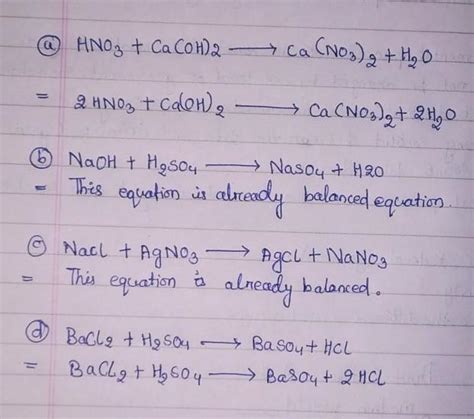 (a) HNO3 + Ca(OH)2 ⟶ Ca(NO3)2 + H2O
= 2HNO3 + Ca(OH)2 ⟶ Ca(NO3)2 + 2H2O
(b) NaOH + H2SO4 ⟶ NaSO4 + H2O
= This equation is already balanced equation.
(c) NaCl + AgNO3 ⟶ AgCl + NaNO3
= This equation is already balanced.
(d) BaCl2 + H2SO4 ⟶ BaSO4 + HCl
= BaCl2 + H2SO4 ⟶ BaSO4 + 2HCl